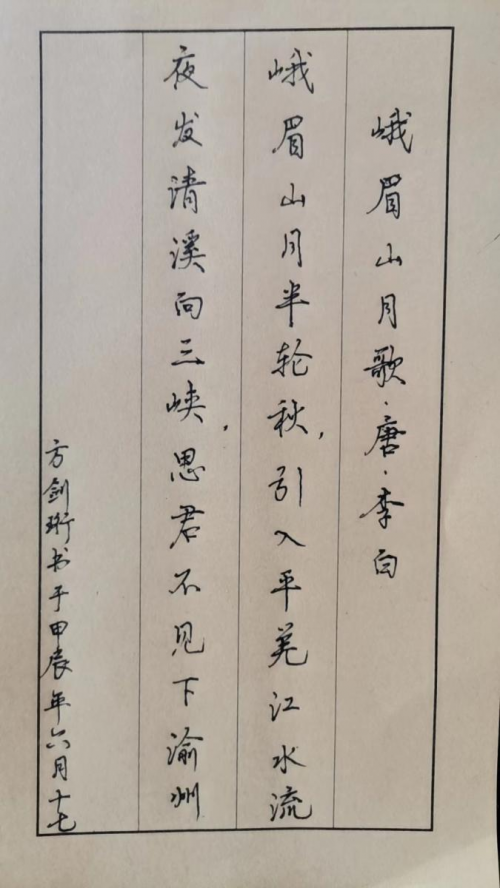 峨眉山月歌·唐·李白
峨眉山月半轮秋，引入平羌江水流
夜发清溪向三峡，思君不见下渝州
方剑珩书于甲辰年六月十七